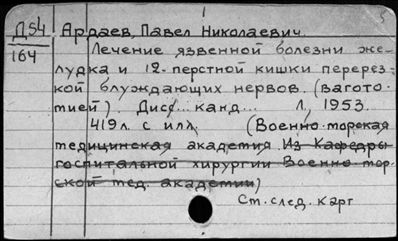 Д54 Ардаев, Павел Николаевич.
164 Лечение язвенной болезни же-
лудка и 12-перстной кишки перерез-
кой блуждающих нервов. (вагото-
мией). Дисс... канд... Л, 1953.
419л. с илл. (Военно-морская
медицинская академия Из Кафедры
госпитальной хирургии Военно-мор-
ской мед. академии)
См. след. карт